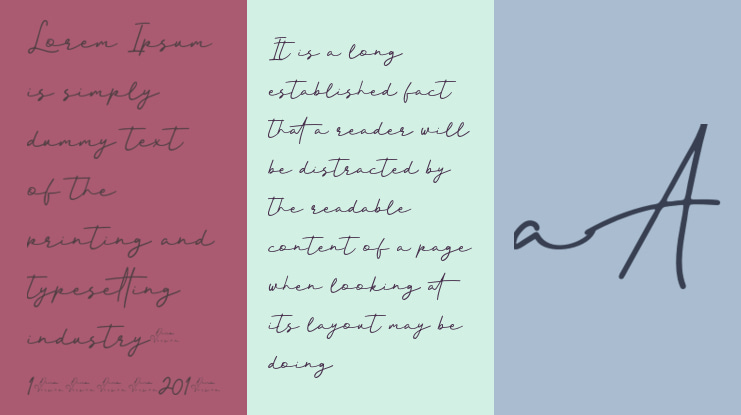 Lorem Ipsum
is simply
dummy text
of the
printing and
typesetting
industry
1 201
It is a long
established fact
that a reader will
be distracted by
the readable
content of a page
when looking at
its layout may be
doing
a A